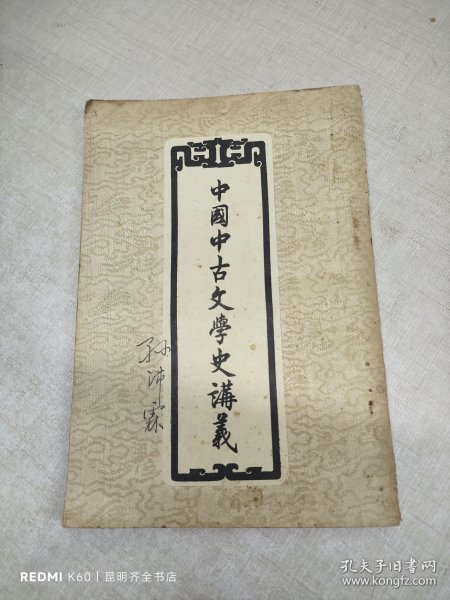 中國中古文學史講義
孙沛霖
REDMI K60 | 昆明齐全书店
孔夫子旧书网
www.kongfz.com